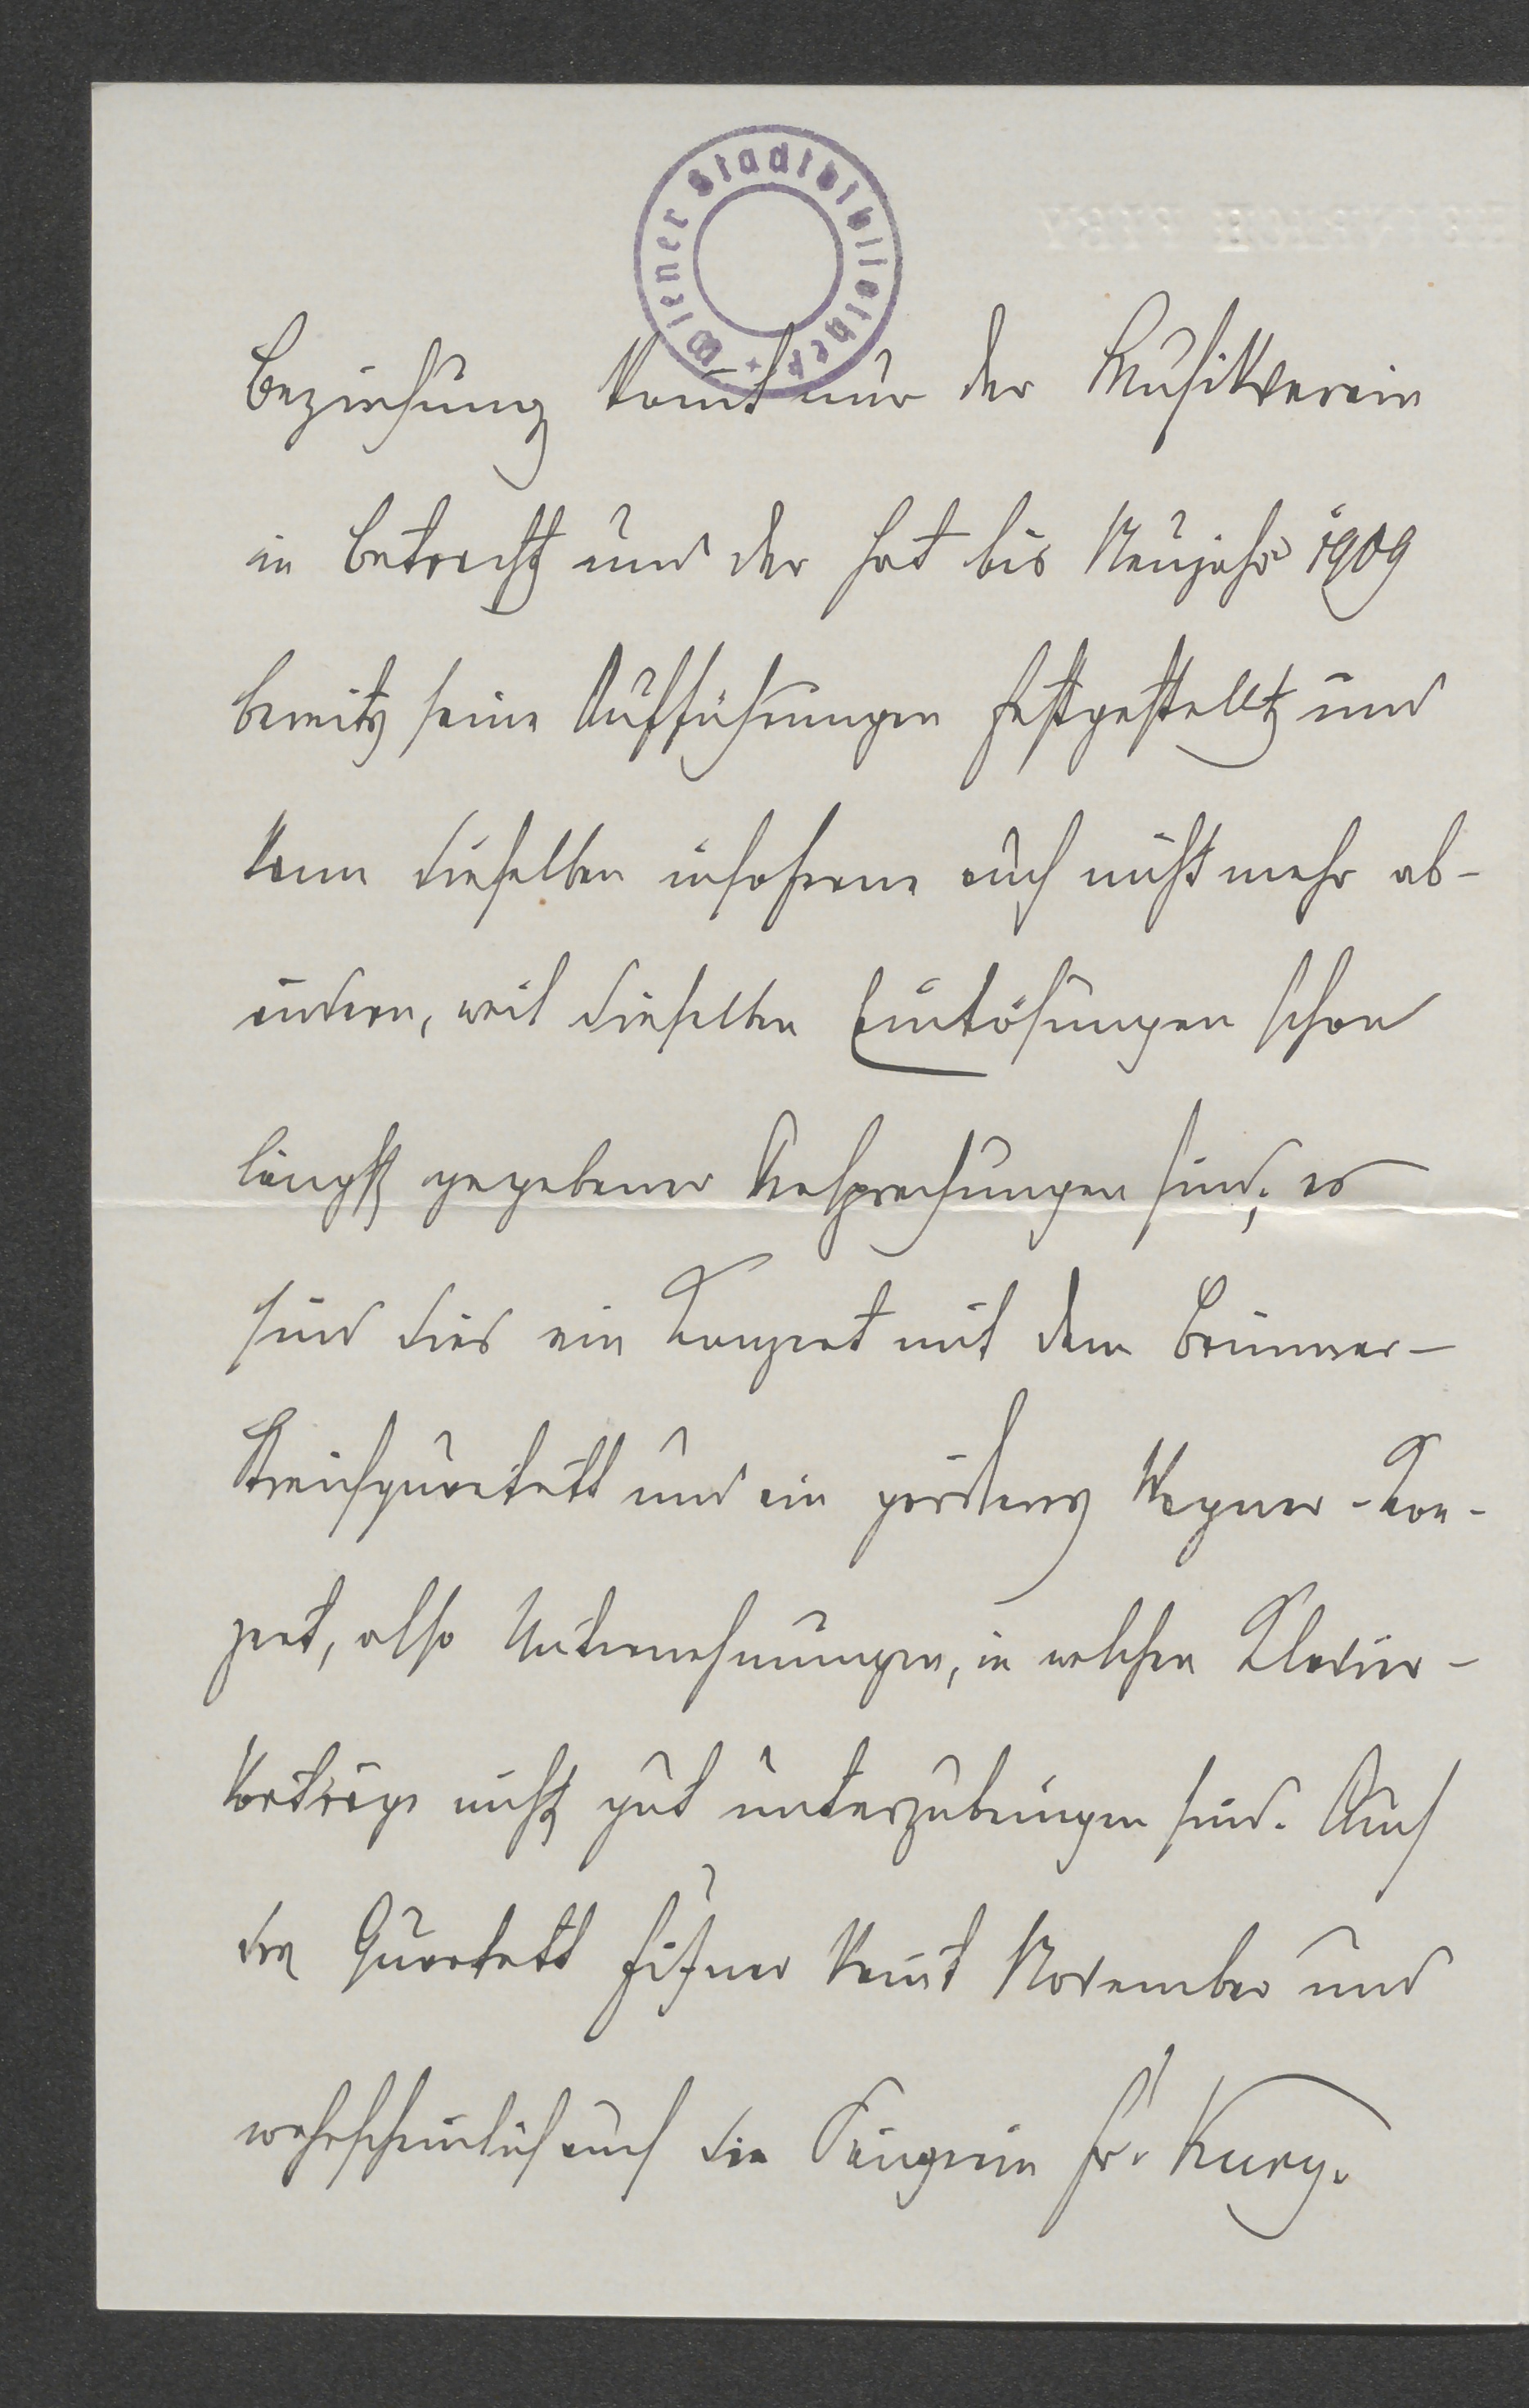 Wiener Stadtbibliothek
Beziehung kom̄t nur der Musikverein
in Betracht und der hat bis Neujahr 1909
bereits seine Aufführungen festgestellt und
kann dieselben insoferne auch nicht mehr ab-
ändern, weil dieselben Einlösungen schon
längst gegebener Versprechungen sind; es
sind dies ein Konzert mit dem Brünner-
Streichquartett und ein größeres Wagner-Kon-
zert, also Unternehmungen, in welchen Klavier-
vorträge nicht gut unterzubringen sind. Auch
das Quartett Fitzner kom̄t November und
wahrscheinlich auch die Sängerin Fr. Kurz.